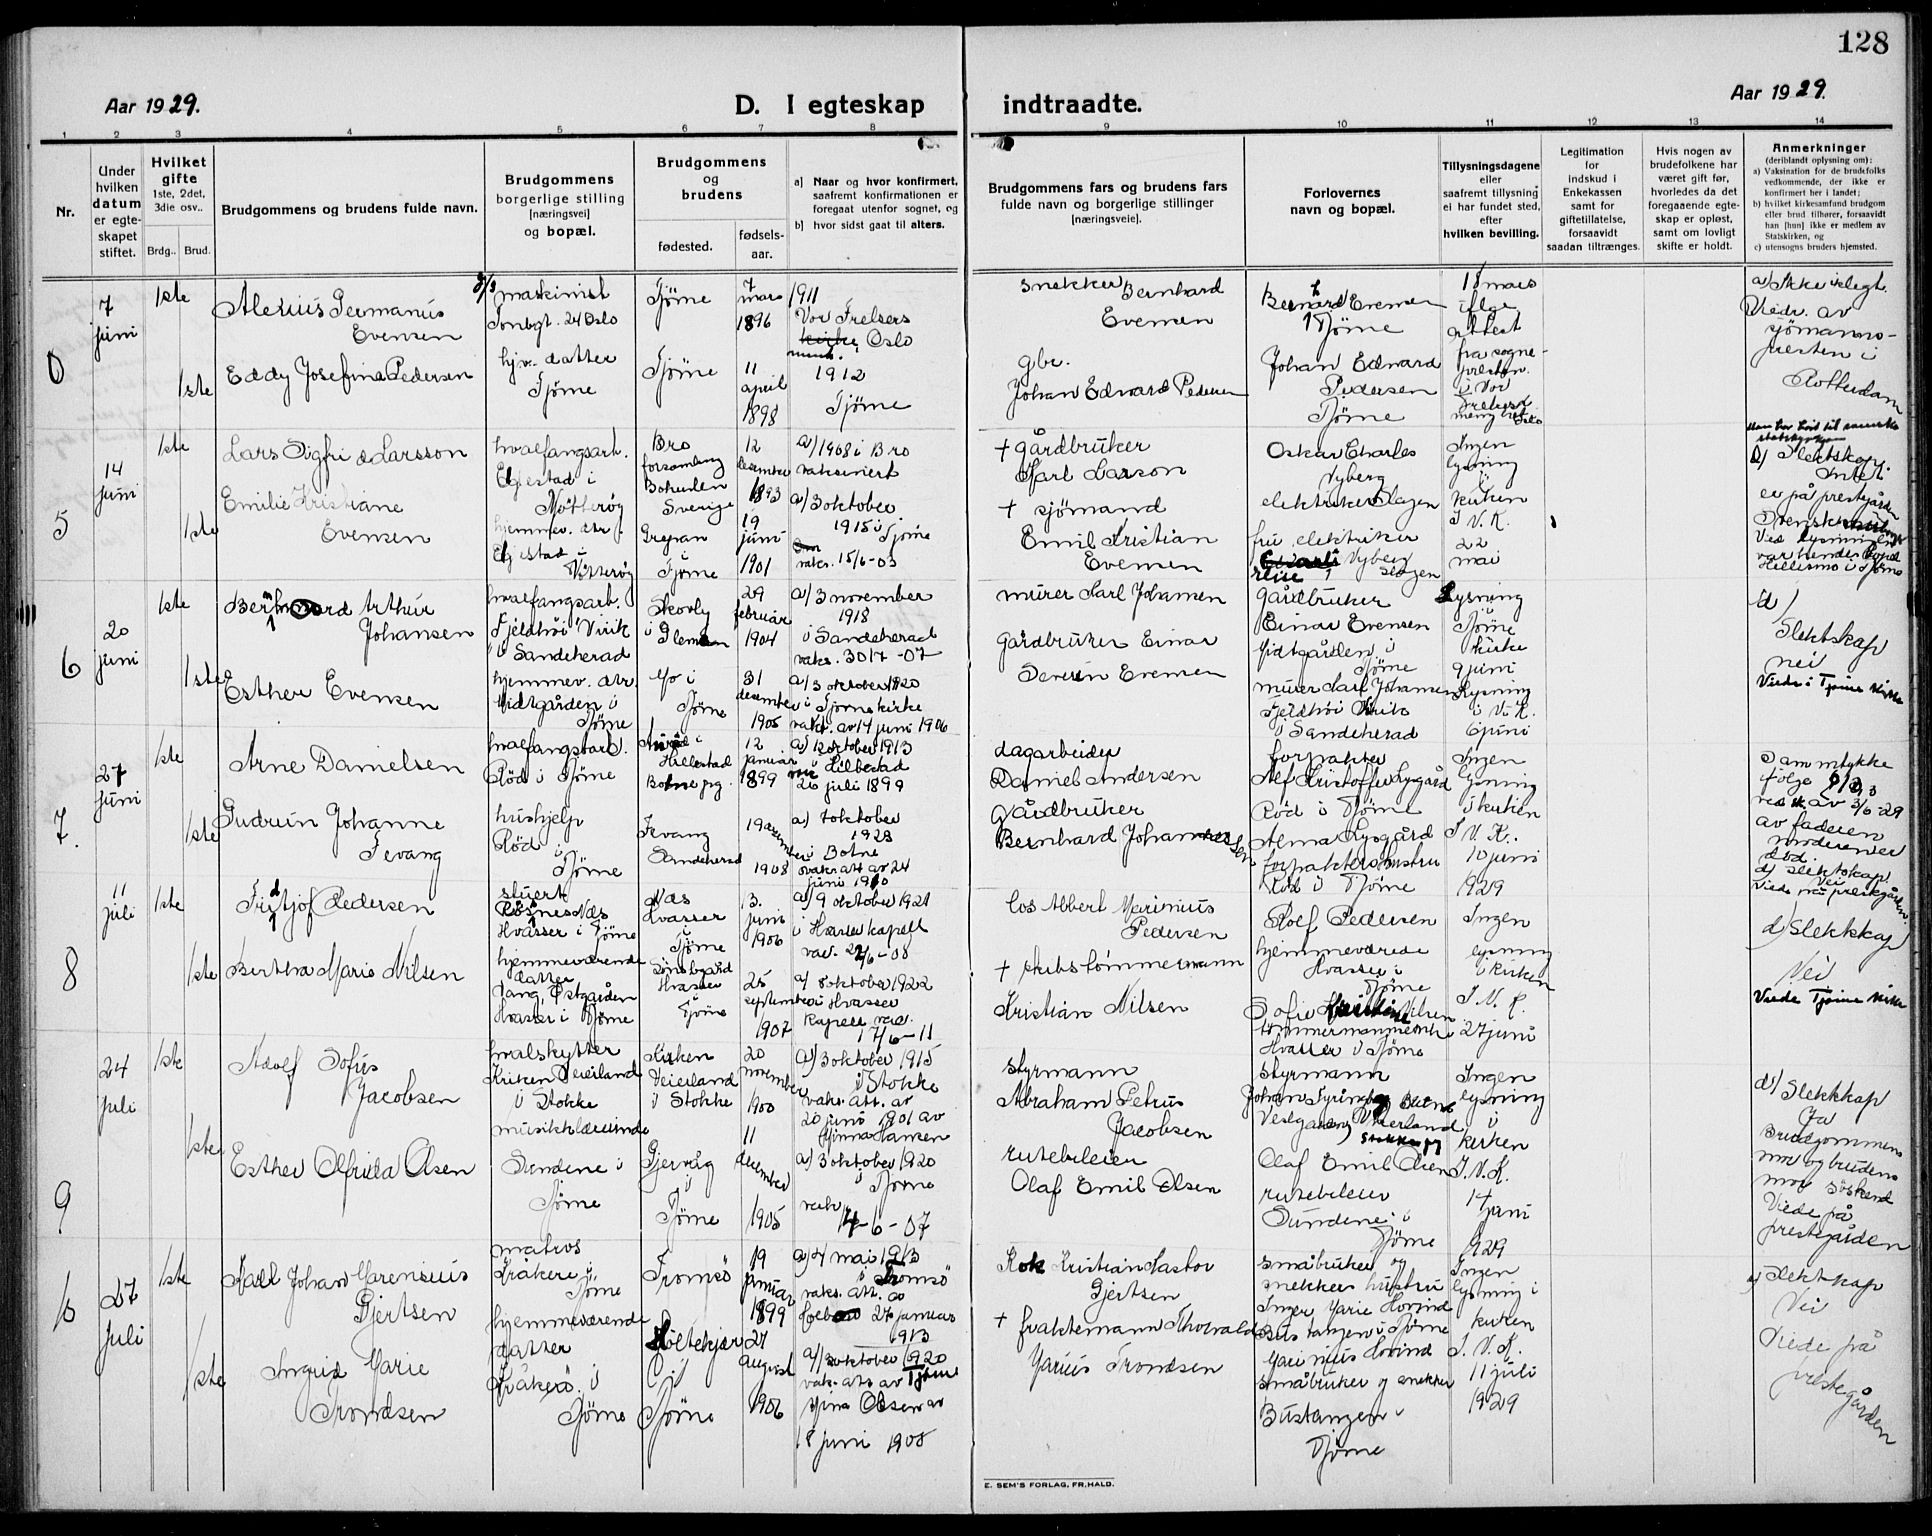 128
Aar 1929.
D. I egteskap indtraadte.
Aar 1929.
1 2 3 4 5 6 7 8 9 10 11 12 13 14
Nr.
Under hvilken datum er egteskapet stiftet.
Hvilket gifte 1ste, 2det, 3die osv..
Brdg.. Brud.
Brudgommens og brudens fulde navn.
Brudgommens borgerlige stilling [næringsvei] og bopæl.
Brudgommens og brudens
fødested.
fødselsaar.
a) Naar og hvor konfirmert, saafremt konfirmationen er foregaat utenfor sognet, og
b) hvor sidst gaat til alters.
Brudgommens fars og brudens fars fulde navn og borgerlige stillinger [næringsveie].
Forlovernes navn og bopæl.
Tillysningsdagene eller saafremt tillysning ei har fundet sted, efter hvilken bevilling.
Legitimation for indskud i Enkekassen samt for giftetillatelse, forsaavidt saadan tiltrænges.
Hvis nogen av brudefolkene har været gift før, hvorledes da det foregaaende egteskap er opløst, samt om lovligt skifte er holdt.
Anmerkninger (deriblandt oplysning om):
a) Vaksination for de brudefolks vedkommende, der ikke er konfirmert her i landet;
b) hvilket kirkesamfund brudgom eller brud tilhører, forsaavidt han [hun] ikke er medlem av Statskirken, og
c) utensogns bruders hjemsted.
7 juni
1ste
Evensen
maskinist
24 Oslo
Tjöme
7 mars 1896
1911
Vor Frelsers
kirke Oslo
snekker Bernhard
Evensen
Bernhard Evensen
Tjöme
18 mars
ifölge
attest
fra sogne-
presten
i Vor
a) Ikke slegt.
Viedr. av
sjömanns-
presten i
Rotterdam
1ste
Eddy Josefine Pedersen
hjv. datter
Tjöme
Tjöme
11 april 1898
1912
Tjöme
gbr.
Johan Edvard Pedersen
Johan Edvard
Pedersen
Tjöme
5
14 juni
1ste
Lars Sigfrid Larsson
hvalfangsarb.
i
Nötteröy
Bro
forsamling
Bohuslen
Sverige
12 desember 1893
a) 1908 i Bro
vaksinert
+ gårdbruker
Karl Larsson
Oskar Charles
Nyberg
elektriker Slagen
Ingen
lysning
i kirken
I V. K.
22
mai
d) Slektskap.
Intet
er på prestegården
1ste
Emilie Kristiane
Evensen
hjemmev. dtr.
i
Nötteröy
Grepan
i
Tjöme
19 juni 1901
a) 3 oktober
1915 i
Tjöme
vaks. 15/6-03
+ sjömand
Emil Kristian
Evensen
fru elektriker
Nyberg
Slagen
6
20 juni
1ste
Arthur
Johansen
hvalfangsarb.
Fjeldhöi Virik
i Sandeherad
Skovly
i
29 februar 1904
a) 3 november
1918
i Sandeherad
vaks. 30/7-07
murer Karl Johansen
gårdbruker
Einar Evensen
Midtgården i
Tjöme
Lysning
i
Tjöme
kirke
9 juni
d)
Slektskap
nei
Viede i Tjöme kirke
1ste
Esther Evensen
hjemmev. dtr.
Midtgården i
Tjöme
i
Tjöme
31 desember 1905
a) 3 oktober 1920
i Tjöme kirke
vaks. av 14 juni 1906
gårdbruker Einar
Severin Evensen
murer Karl Johansen
Fjeldhöi Virik
i Sandeherad
Lysning
i V. K.
6 juni
7.
27 juni
1ste
Arne Danielsen
hvalfangstarb.
Röd i Tjöme
i
Hillestad
Botne pg.
12 januar 1899
a) 12 oktober 1913
i Hillestad
26 juli 1899
dagarbeider
Daniel Andersen
forpakter
Alf Kristoffer Lysgård
Röd i Tjöme
Ingen
lysning
i kirken
I V. K.
10 juni
1929
Samtykke
følge
av 3/6-29
av faderen
moderen er
död.
d) Slektskap.
Nei
Viede på prestegården
1ste
Gudrun Johanne
Tevang
hushjelp
Röd
i
Tjöme
Tevang
Sandeherad
19 november 1908
a) 7 oktober
1923
i Botne
vaks. att. av 24
juni 1910
gårdbruker
Bernhard Johannessen
Alma Lysgård
forpakters hustru
Röd i Tjöme
8
11 juli
1ste
Fridtjof Pedersen
stuert
Rösnes Næs
Hvasser i Tjöme
Næs
Hvasser
i
Tjöme
13. juni 1906
a) 9 oktober 1921
i Hvasser kapell
los Albert Marinius
Pedersen
Rolf Pedersen
hjemmeværende
Hvasser i
Tjöme
Ingen
lysning
i kirken
I. V. K.
27 juni
d) Slektskap
Nei
Viede Tjöme kirke
1ste
Bertha Marie Nilsen
hjemmeværende
datter
Vang, Östgården
Hvasser i Tjöme
Hvasser
i
Tjöme
25 september 1907
a) 8 oktober 1922
i Hvasser
kapell vac.
17/6-11
+ skibstömmermann
Kristian Nilsen
Sofie Kristine Nilsen
tömmermannsenke
Hvasser i Tjöme
9
24 juli
1ste
Adolf Sofus
Jacobsen
hvalskytter
Kirken Veierland
i Stokke
Kirken
Veierland
i Stokke
20 november 1900
a) 3 oktober 1915
i Stokke
vaks. att. av
20 juni 1901 av
Hansen
styrmann
Abraham Petrus
Jacobsen
styrmann
Johan
Vestgården, Veierland
Stokke pg
Ingen
lysning
i
kirken
I. V. K.
14 juni
1929
d) Slektskap
Ja
Brudgommens
mor og brudens
mor söskend
Viede på
prestegården
1ste
Esther Alfrida Olsen
musikklærerinde
Sundene i
Tjöme
Gjervåg
i
Tjöme
11 desember 1905
a) 3 oktober 1920
i Tjöme
14-6-07
rutebileier
Olaf Emil Olsen
Olaf Emil Olsen
rutebileier
Sundene i
Tjöme
10
27 juli
1ste
Karl Johan Marensius
Gjertsen
matros
Kråkere i
Tjöme
Tromsö
19 januar 1899
a) 4 mai 1913
i Tromsö
vaks. att. av
27 januar
1913
Kok Kristian Kastor
Gjertsen
småbruker og
snekker hustru
Inger Marie Hovind
Bustangen i Tjöme
Ingen
lysning i
kirken
I. V. K.
11 juli
1929
d) Slektskap
Nei
Viede på
prestegården
1ste
Ingrid Marie
Trondsen
hjemmeværende
datter
Kråkere i
Tjöme
Holtekjær
i
Tjöme
27 august 1906
a) 3 oktober 1920
vaks. att. av Tjöme
Olsen av
18 juni 1908
+ fraktemann Thorvald
Marius Trondsen
Marinius Hovind
småbruker og snekker
Bustangen i
Tjöme
E. SEM'S FORLAG, FR.HALD.